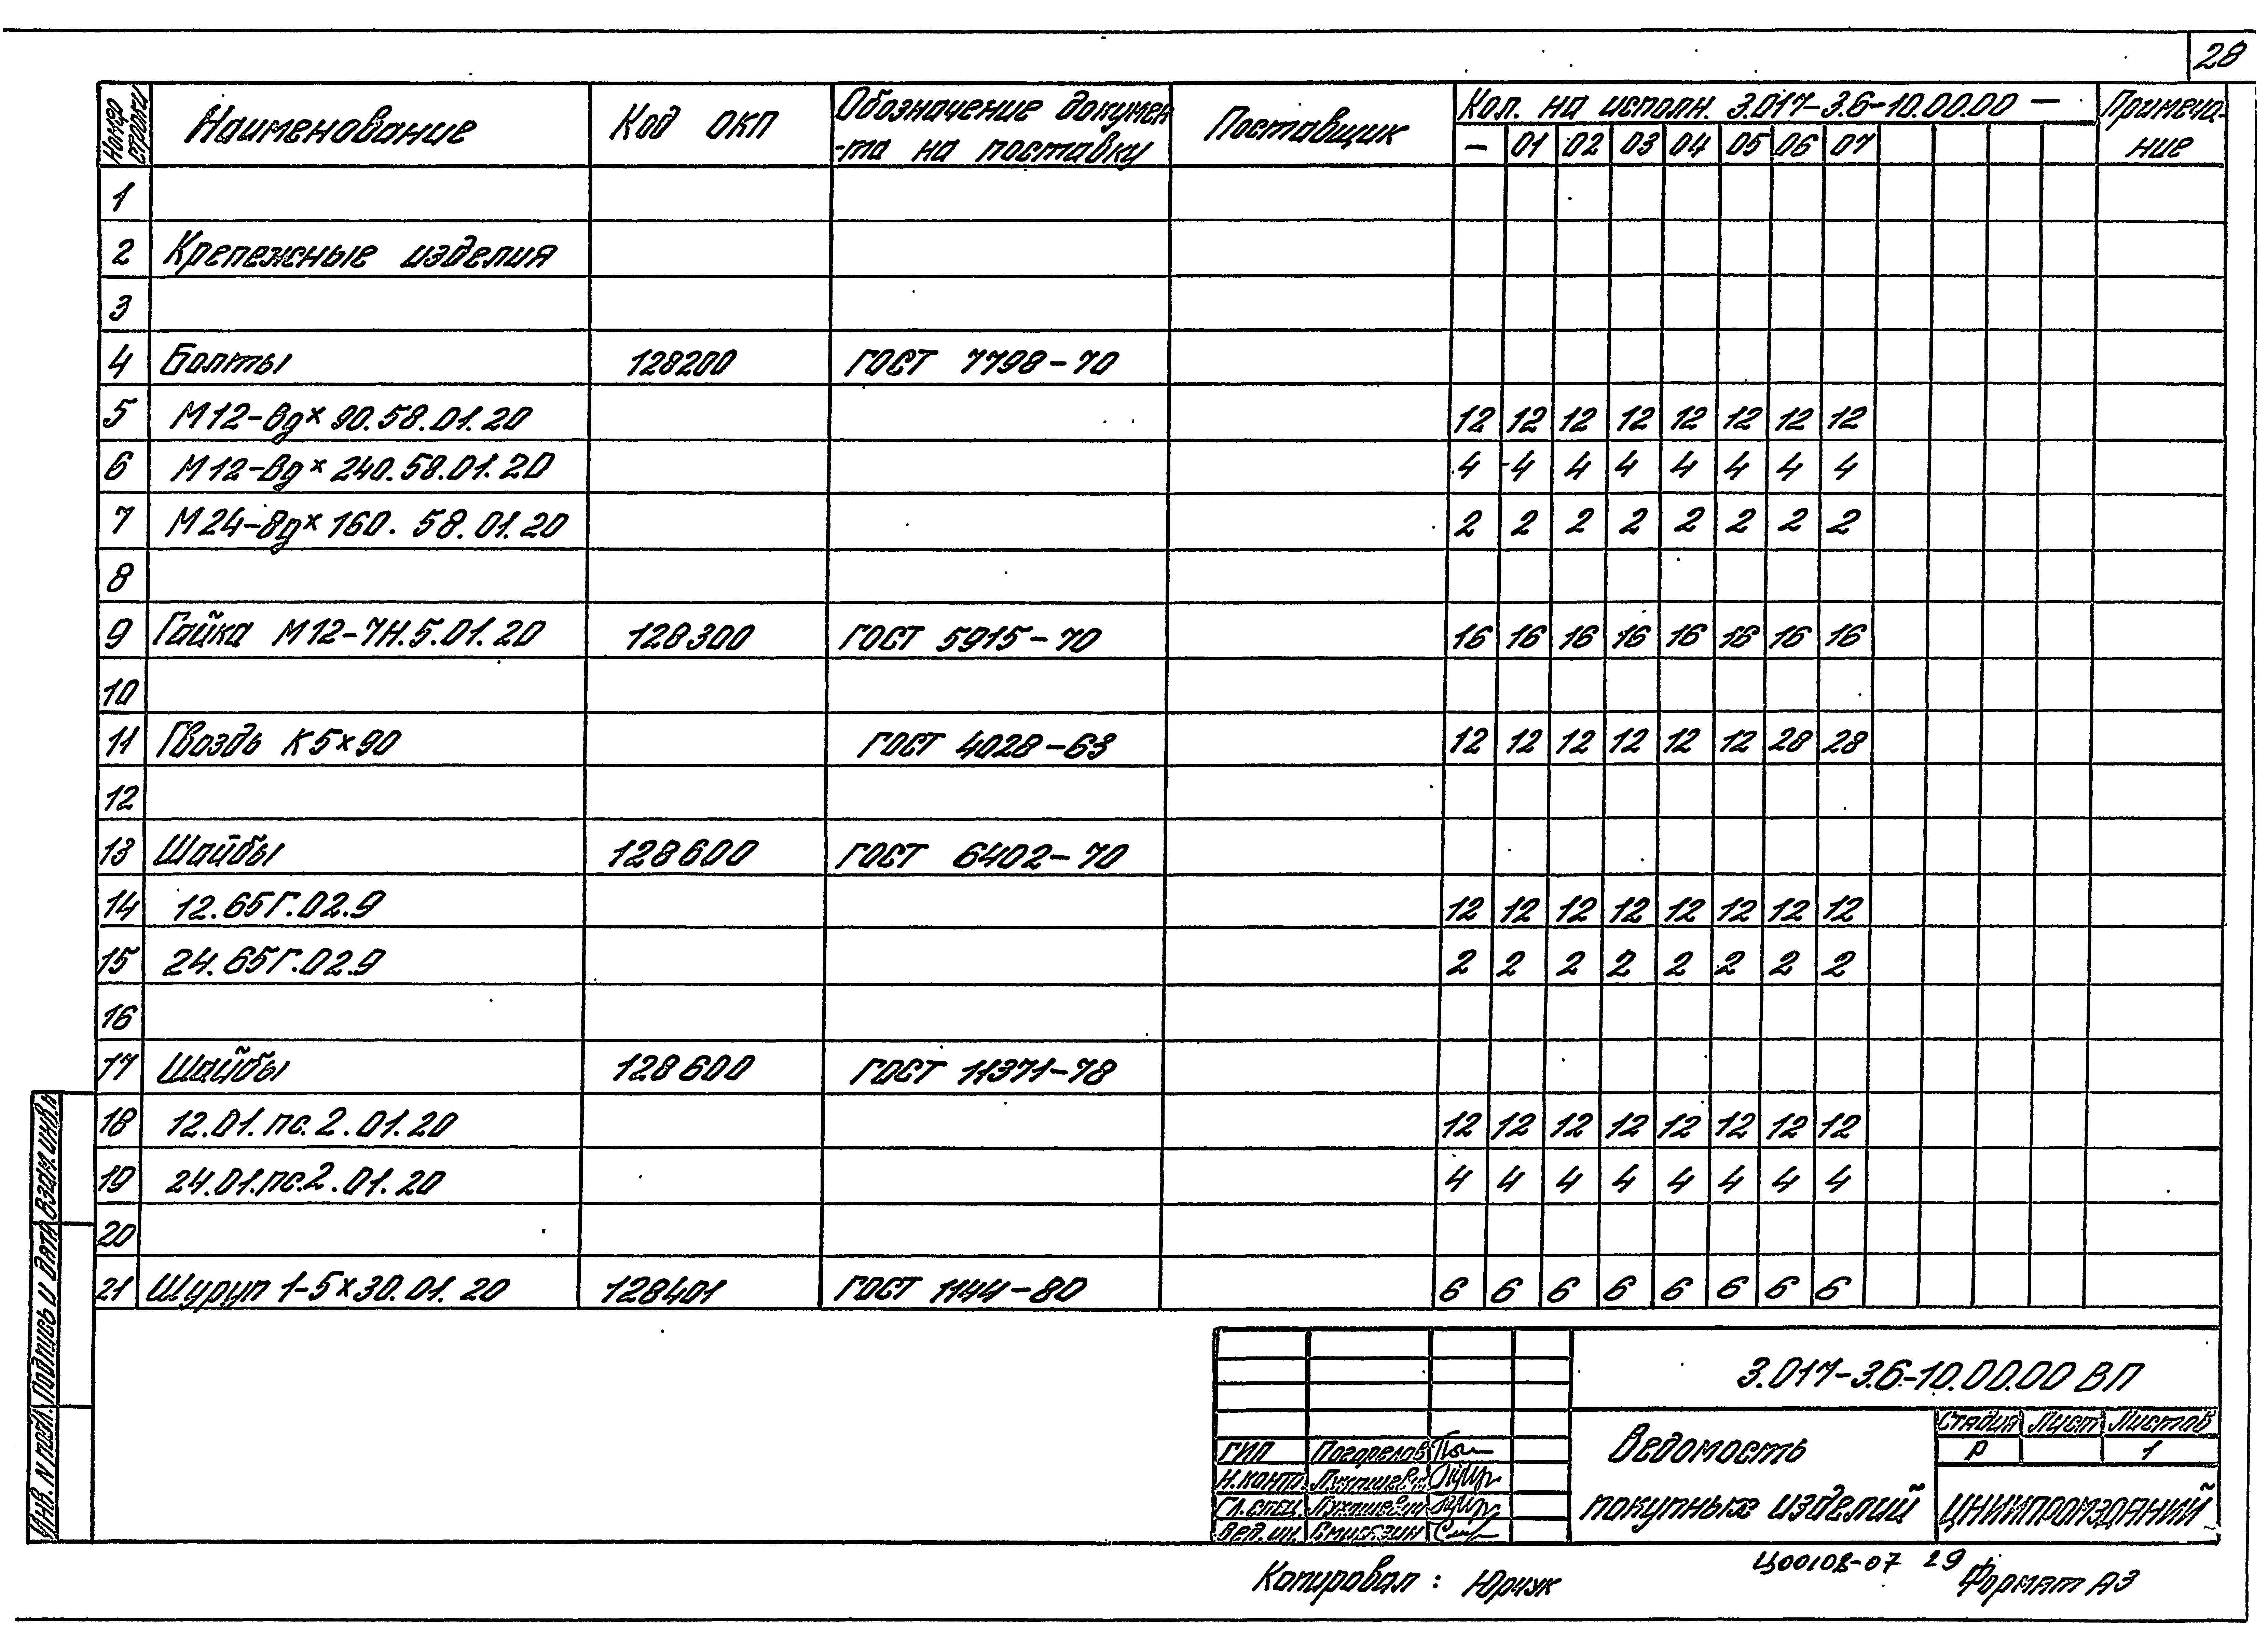 28
Номер строки Наименование Код ОКП Обозначение докумен-та на поставку Поставщик Кол. на исполн. 3.017-3.6-10.00.00 — Примеча-ние
– 01 02 03 04 05 06 07
1
2 Крепежные изделия
3
4 Болты 128200 ГОСТ 7798-70
5 М12-8gх90.58.01.20 12 12 12 12 12 12 12 12
6 М12-8gх240.58.01.20 4 4 4 4 4 4 4 4
7 М24-8gх160.58.01.20 2 2 2 2 2 2 2 2
8
9 Гайка М12-7Н.5.01.20 128300 ГОСТ 5915-70 16 16 16 16 16 16 16 16
10
11 Гвоздь К5х90 ГОСТ 4028-63 12 12 12 12 12 12 28 28
12
13 Шайбы 128600 ГОСТ 6402-70
14 12.65Г.02.9 12 12 12 12 12 12 12 12
15 24.65Г.02.9 2 2 2 2 2 2 2 2
16
17 Шайбы 128600 ГОСТ 11371-78
18 12.01.пс.2.01.20 12 12 12 12 12 12 12 12
19 24.01.пс.2.01.20 4 4 4 4 4 4 4 4
20
21 Шуруп 1-5х30.01.20 128401 ГОСТ 1144-80 6 6 6 6 6 6 6 6
Взам.инв.№
Подпись и дата
Инв.№подл.
3.017-3.6-10.00.00 ВП
Ведомость
покупных изделий
Стадия Лист Листов
Р 1
ЦНИИПРОМЗДАНИЙ
ГИП Погорелов
Н.контр.
Гл.спец.
Вед.ин.
Копировал: Юрчук
Ц00108-07 29
Формат А3